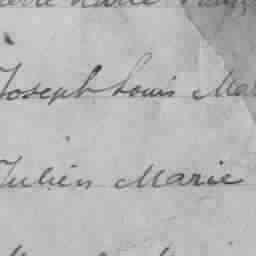 Marie
Joseph Louis Ma
Julien Marie